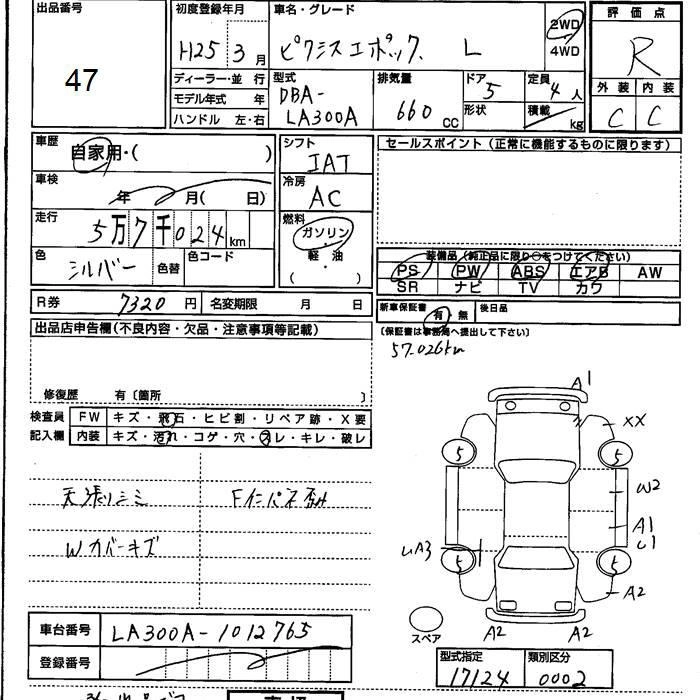 出品番号
47
初度登録年月
H25 3月
車名・グレード
ピクシスエポック L
2WD
4WD
評価点
R
外装 内装
C C
ディーラー・並 行
モデル年式 年
ハンドル 左・右
型式
DBA-
LA300A
排気量
660 CC
ドア
5
形状
定員
4人
積載
kg
車歴
自家用・( )
車検
年 月( 日)
走行
5万7千024km
色
シルバー
色替
色コード
シフト
IAT
冷房
AC
燃料
ガソリン
軽油
( )
セールスポイント (正常に機能するものに限ります)
装備品 (純正品に限り○をつけてください)
PS PW ABS エアB AW
SR ナビ TV カワ
R券 7320円
名変期限 月 日
新車保証書
有・無
後日品
(保証書は事務局へ提出して下さい)
57.026km
出品店申告欄 (不良内容・欠品・注意事項等記載)
修復歴 有〔箇所 〕
検査員
記入欄
FW キズ・飛石・ヒビ割・リペア跡・X要
内装 キズ・汚れ・コゲ・穴・スレ・キレ・破レ
天張リシミ
Wカバーキズ
A1
XX
5
5
W2
A1
U1
UA3
5
5
A2
A2
A2
スペア
車台番号 LA300A-1012765
登録番号
型式指定
17124
類別区分
0002